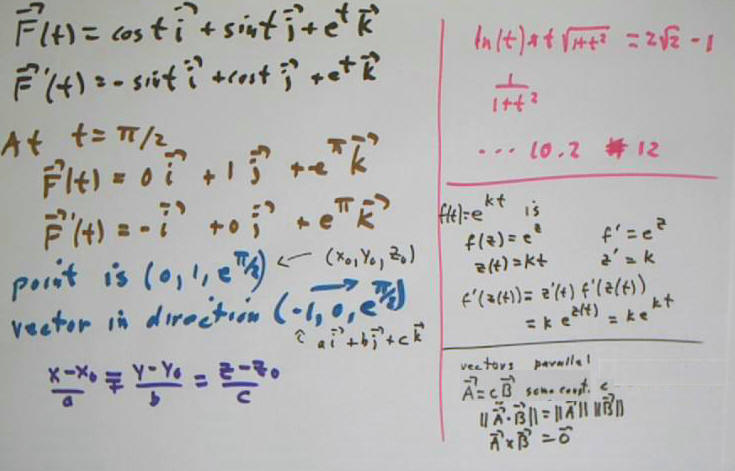 F⃗(t) = cos t i⃗ + sin t j⃗ + e^t k⃗
F⃗'(t) = - sin t i⃗ + cos t j⃗ + e^t k⃗
At t = π/2
F⃗(t) = 0 i⃗ + 1 j⃗ + e^π k⃗
F⃗'(t) = - i⃗ + 0 j⃗ + e^π k⃗
point is (0, 1, e^{π/2}) ← (x₀, y₀, z₀)
vector in direction (-1, 0, e^{π/2})
↑ a i⃗ + b j⃗ + c k⃗
x-x₀/a = y-y₀/b = z-z₀/c
ln(t) + t √1+t² = 2√2 - 1
1/1+t²
... 10.2 # 12
f(t) = e^{kt} is
f(z) = e^z f' = e^z
z(t) = kt z' = k
f'(z(t)) = z'(t) f'(z(t))
= k e^{z(t)} = k e^{kt}
vectors parallel
A⃗ = c B⃗ some const. c
||A⃗ · B⃗|| = ||A⃗|| ||B⃗||
A⃗ × B⃗ = 0⃗